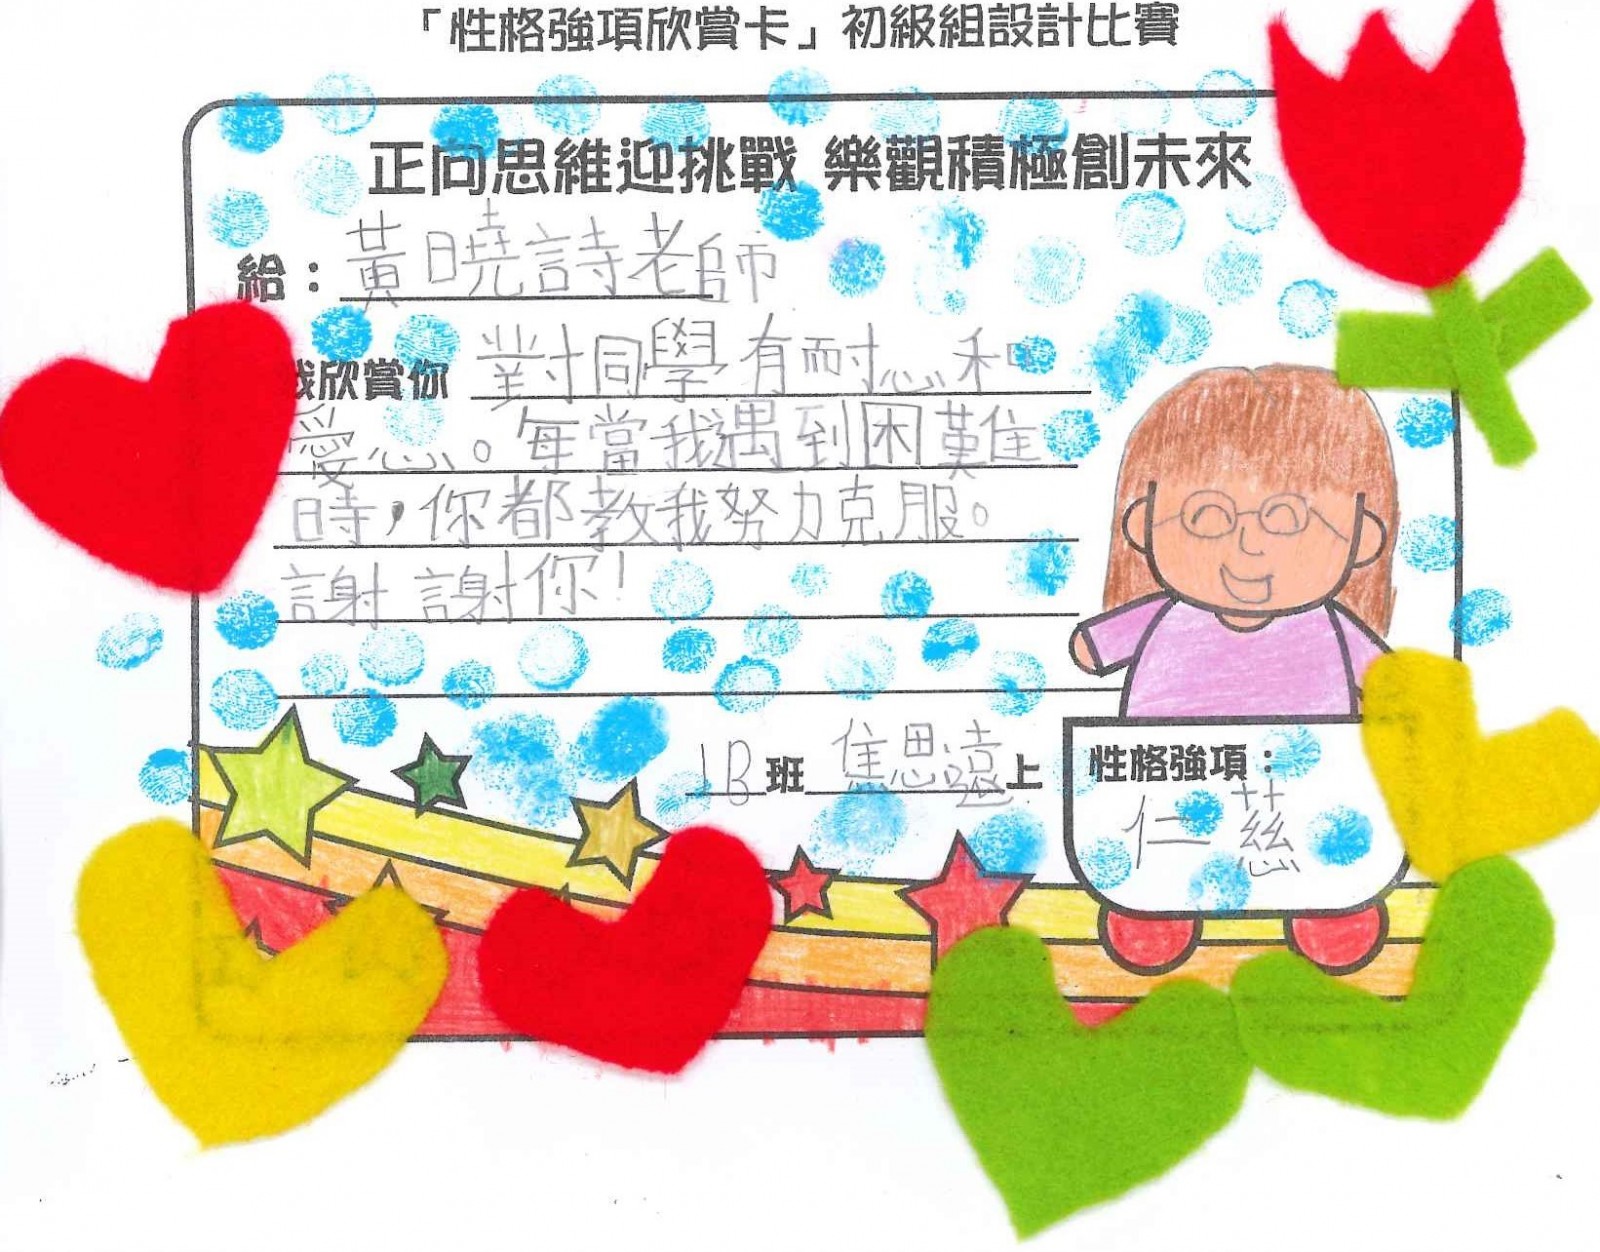 「性格強項欣賞卡」初級組設計比賽
正向思維迎挑戰 樂觀積極創未來
給：黃曉詩老師
我欣賞你 對同學有耐心和
愛心。每當我遇到困難
時，你都教我努力克服。
謝謝你！
1B班 焦思遠上
性格強項：
仁慈